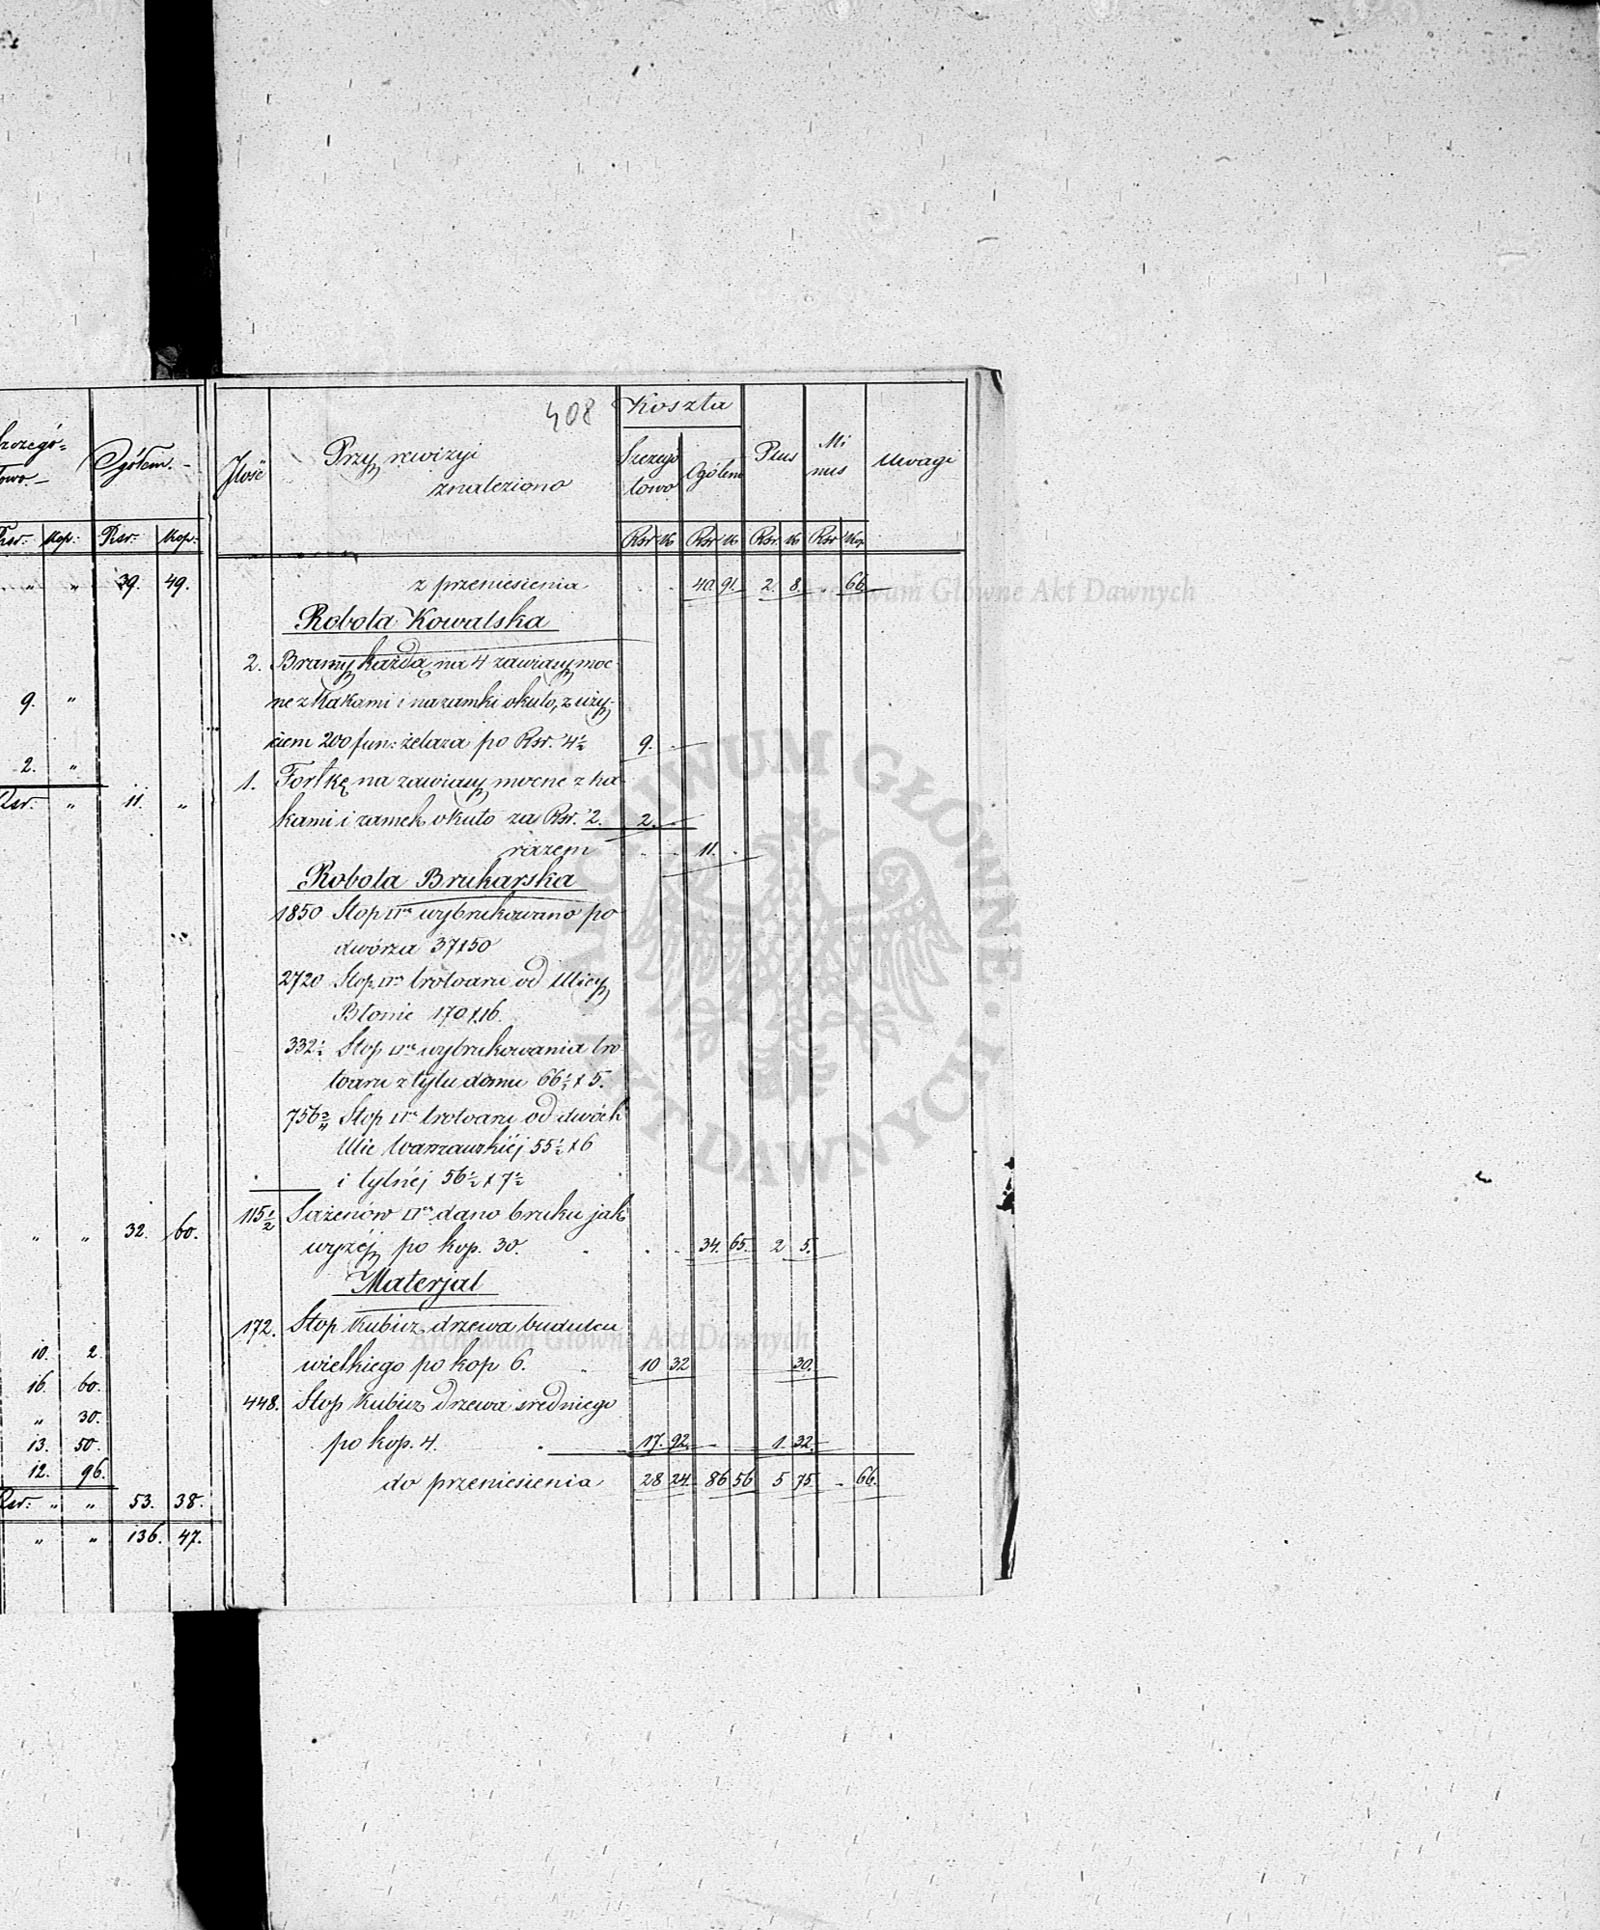 Ogółem.
Rsr: Kop: Rsr: Kop:
" " 39. 49.
9. "
2. "
Rsr: " 11. "
" " 32. 60.
10. 2.
16. 60.
" 30.
13. 50.
12. 96.
Rsr: " " 53. 38.
" " 136. 47.
408
Ilość
Przy rewizyi
znaleziono
Koszta
Szczegó
łowo
Ogółem
Plus
Mi
nus
Uwagi
Rsr K Rsr K Rsr K Rsr Kop
z przeniesienia 40. 91. 2. 8. 66.
Robota Kowalska
2. Bramy każdą na 4 zawiasy moc-
ne z hakami i na zamki okuto, z uży-
ciem 200 fun: żelaza po Rsr. 4½ 9.
1. Fortkę na zawiasy mocne z ha-
kami i zamek okuto za Rsr. 2. 2.
razem 11.
Robota Brukarska
1850 Stop □ wybrukowano po
dwórza 37x50
2720 Stop □ trotoaru od Ulicy
Błonie 170x16.
332½ Stop □ wybrukowania tro
toaru z tyłu domu 66½ x 5.
756¾ Stop □ trotoaru od dwóch
Ulic Warszawskiéj 55½ x 6
i tylnéj 56½ x 7½
115½ Sążenów □ dano bruku jak
wyzéj po kop. 30. 34. 65. 2 5.
Materjal
172. Stop Kubicz. drzewa budulcu
wielkiego po kop 6. 10 32 30.
448. Stop Kubicz drzewa sredniego
po kop. 4. 17. 92. 1. 32.
do przeniesienia 28 24. 86 56 5 75. - 66.
Archiwum Główne Akt Dawnych
ARCHIWUM GŁÓWNE · AKT DAWNYCH ·
Archiwum Główne Akt Dawnych